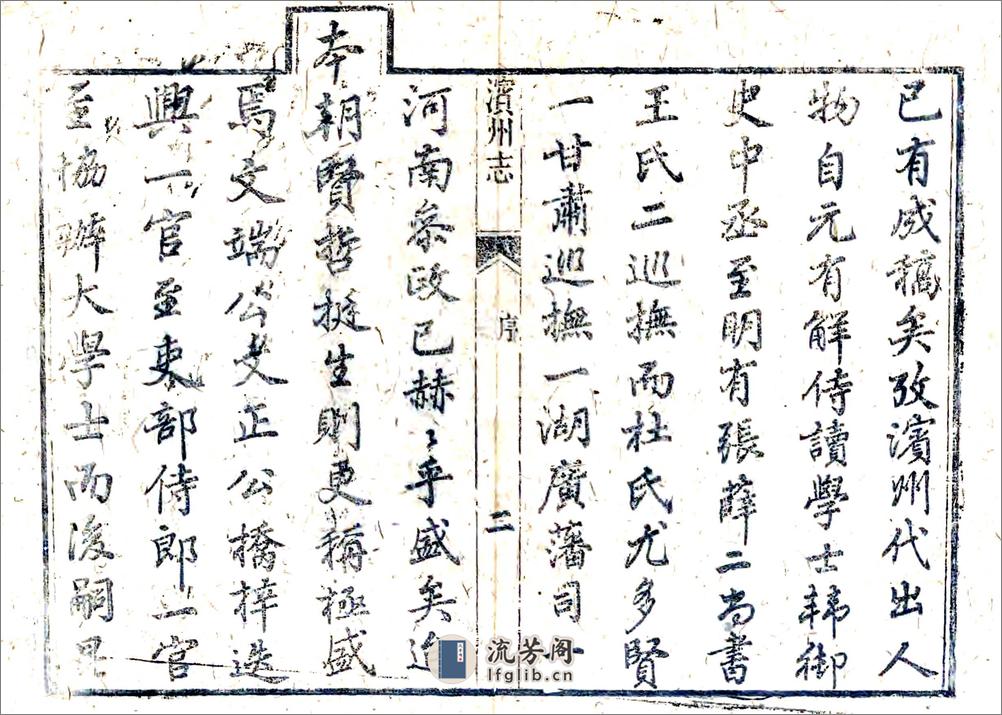 已有成稿矣攷濱州代出人
物自元有解侍讀學士韓御
史中丞至明有張薛二尚書
王氏二巡撫而杜氏尤多賢
一甘肅巡撫一湖廣藩司一
濱州志
序
二
河南叅政已赫〻乎盛矣迨
本朝賢哲挺生則更稱極盛
焉文端公文正公橋梓迭
興一官至吏部侍郎一官
至協辦大學士而後嗣
流芳阁
lfglib.cn